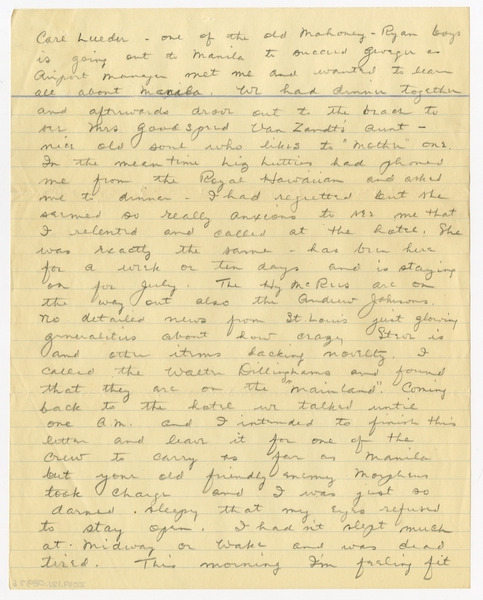 Carl Lueder - one of the old Mahoney-Ryan boys
is going out to Manila to succeed as
Airport Manager met me and wanted to learn
all about Manila. We had dinner together
and afterwards drove out to the beach to
see Mrs. Goodspeed Van Zandt's Aunt -
nice old soul who likes to "mother" one.
In the meantime Liz had phoned
me from the Royal Hawaiian and asked
me to dinner - I had regretted but she
seemed so really anxious to see me that
I relented and called at the hotel. She
was exactly the same - has been here
for a week or ten days and is staying
on for July. The Hy McRees are on
the way out also the Andrew Johnsons.
No detailed news from St. Louis just glowing
generalities about how crazy is
and other items lacking novelty. I
called the Walter Dillinghams and found
that they are on the "mainland". Coming
back to the hotel we talked until
one A.M. and I intended to finish this
letter and leave it for one of the
crew to carry as far as Manila
but your old friendly enemy Morpheus
took charge and I was just so
darned sleepy that my eyes refused
to stay open. I hadn't slept much
at Midway or Wake and was dead
tired. This morning I'm feeling fit